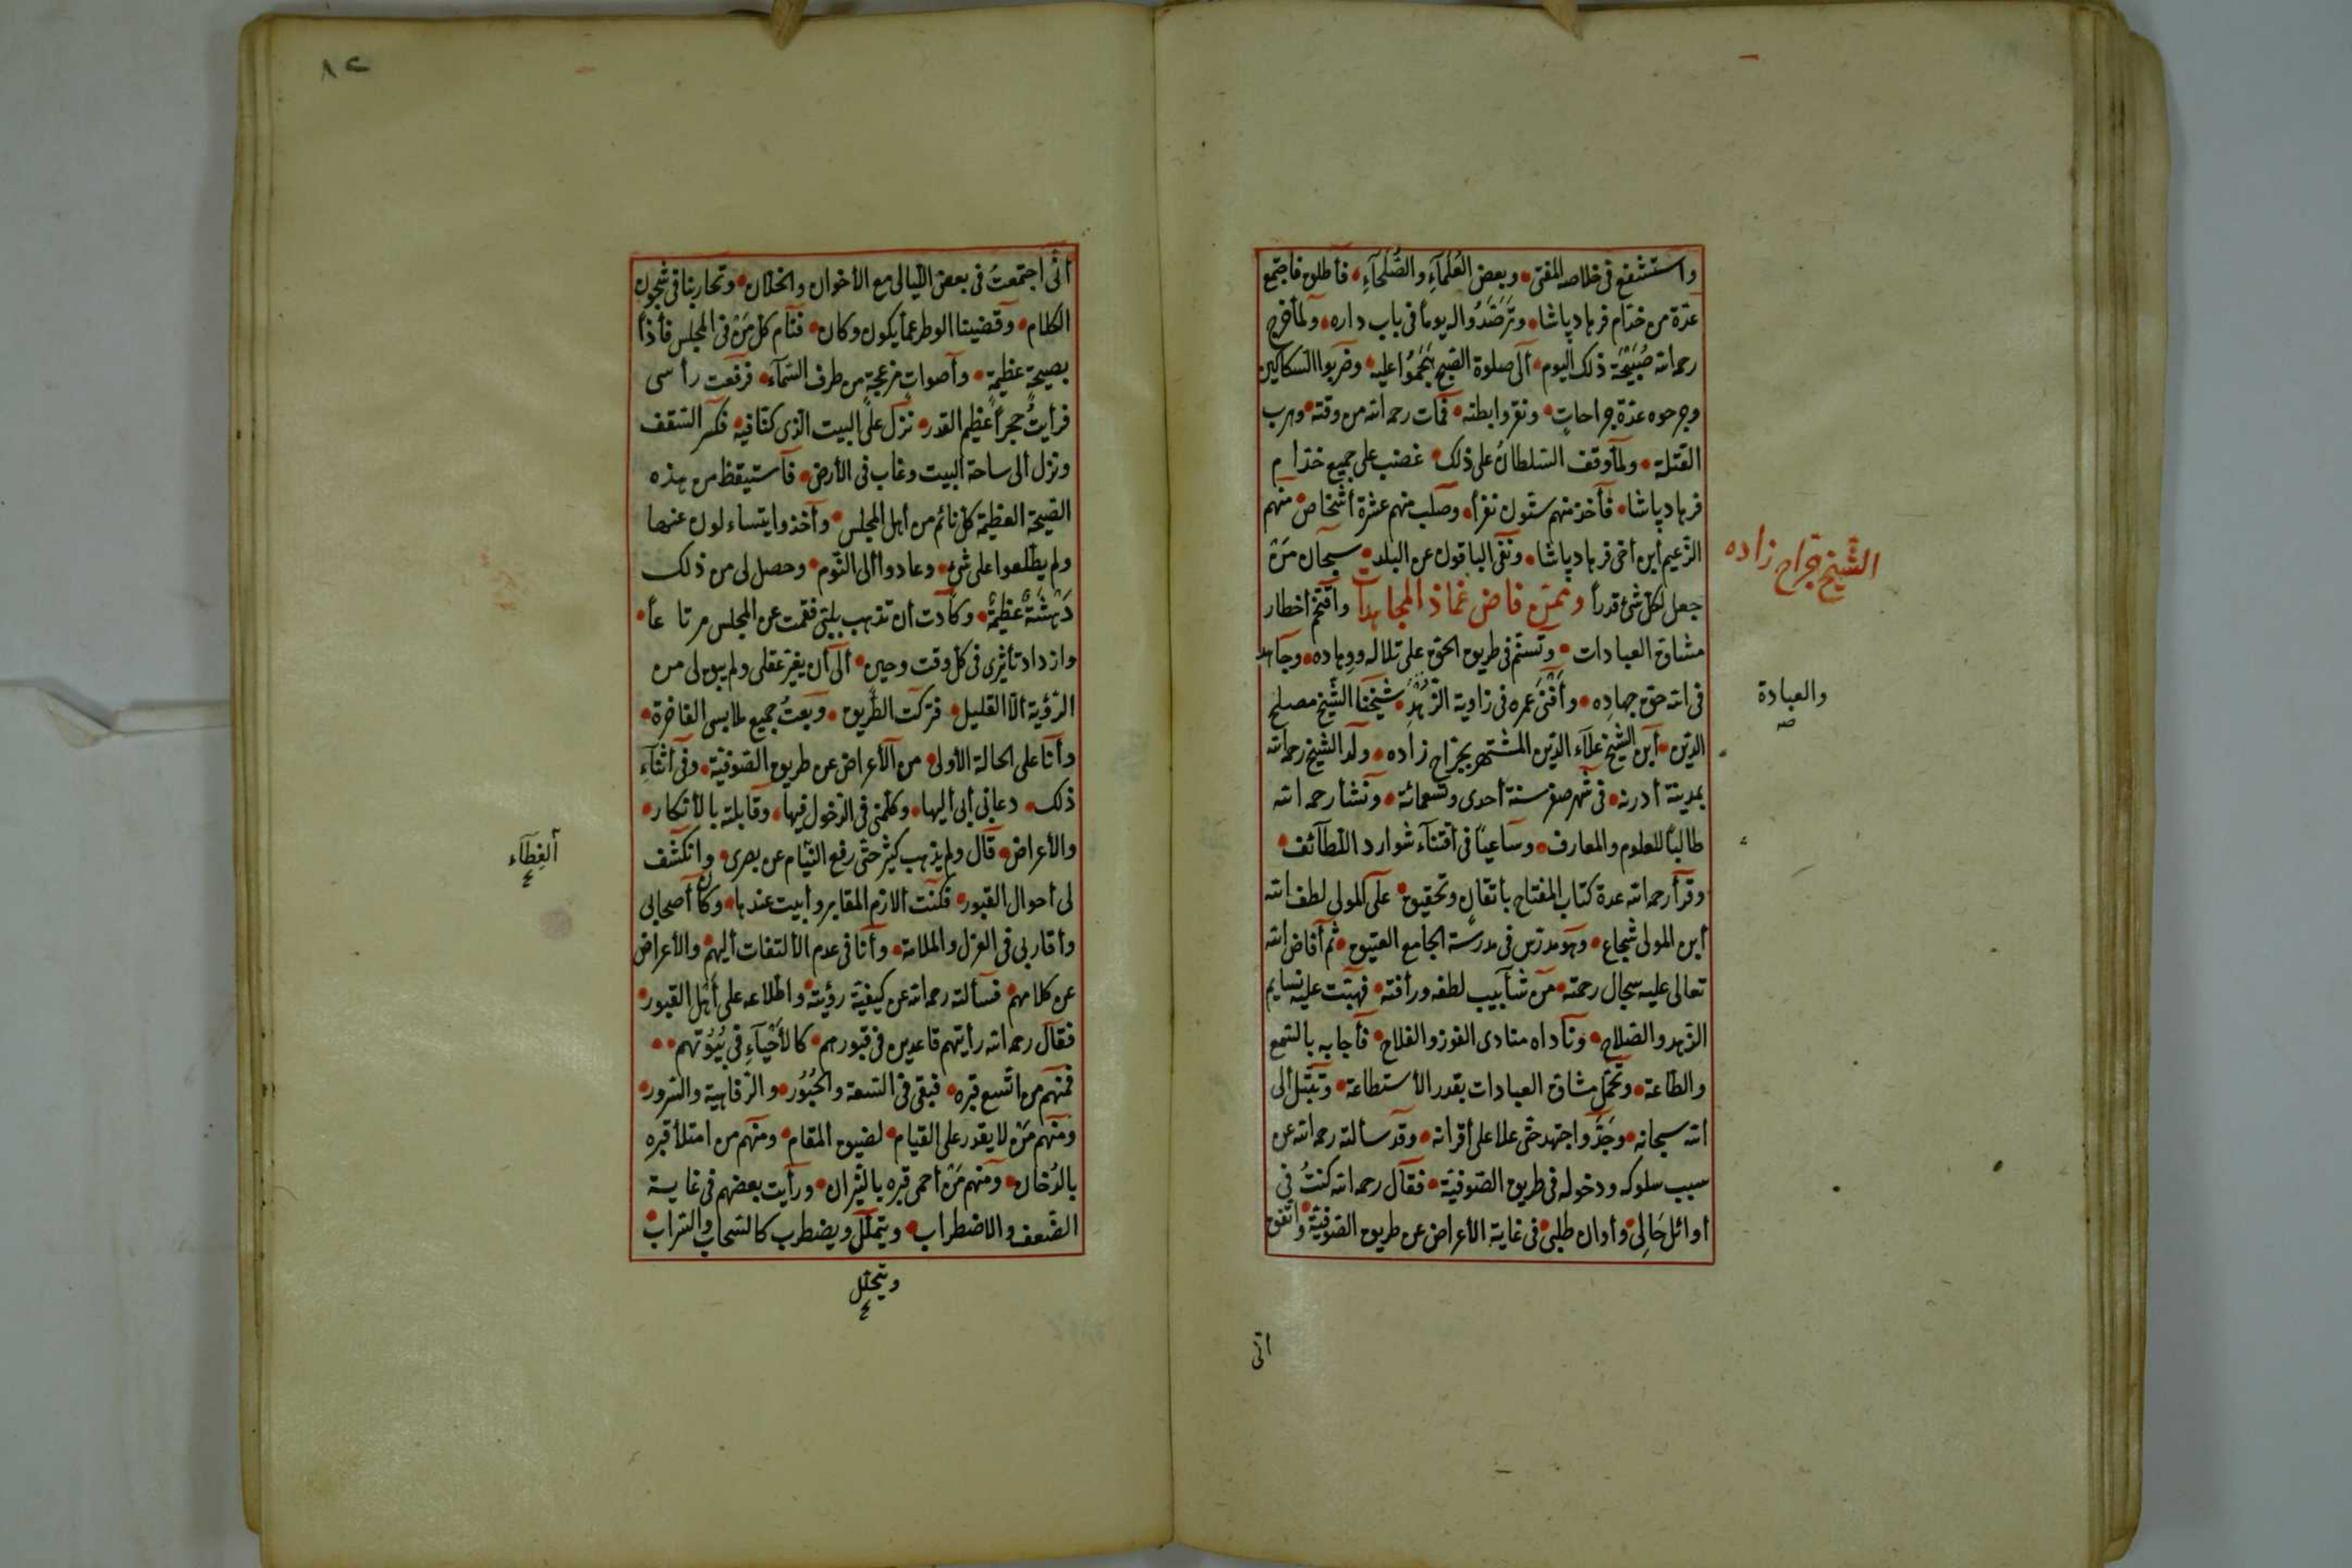 واستشفع فى خلاصه المفتى وبعض العلمآء والصلحآء فأطلق فاجتمع
عدّة من خدّام فرهاد پاشا وترصّدوا له يوما فى باب داره ولمّا خرج
رحمه الله صبيحة ذلك اليوم الى صلوة الصبح هجموا عليه وضربوا السكاكين
وجرحوه عدّة جراحات ونقروا بطنه فمات رحمه الله من وقته وهرب
القتلة ولمّا وقف السلطان على ذلك غضب على جميع خدام
فرهاد پاشا فأخذ منهم ستون نفرا وصلب منهم عشرة أشخاص منهم
الزعيم ابن أخى فرهاد پاشا ونفى الباقون عن البلد سبحان من
جعل لكل شئ قدرا وممّن خاض غمار المجاهدات واقتحم أخطار
الشيخ جراح زاده
مشاق العبادات وتسنّم فى طريق الحق على تلاله ووهاده وجاهد
والعبادة
صه
فى الله حق جهاده وأفنى عمره فى زاوية الزهد شيخنا الشيخ مصلح
الدين ابن الشيخ علآء الدين المشتهر بجراح زاده ولد الشيخ رحمه الله
بمدينة أدرنه فى شهر صفر سنة أحدى وتسعمائة ونشأ رحمه الله
طالبا للعلوم والمعارف وساعيا فى اقتنآء شوارد اللطآئف
وقرأ رحمه الله عدة كتاب المفتاح باتقان وتحقيق على المولى لطف الله
ابن المولى شجاع وهو مدرّس فى مدرسة الجامع العتيق ثم أفاض الله
تعالى عليه سجال رحمته من شآبيب لطفه ورأفته فهبّت عليه نسايم
الزهد والصلاح وناداه منادى الفوز والفلاح فأجابه بالسمع
والطاعة وتحمّل مشاق العبادات بقدر الأستطاعة وتبتّل ألى
الله سبحانه وجدّ واجتهد حتى علا على أقرانه وقد سألته رحمه الله عن
سبب سلوكه ودخوله فى طريق الصّوفيّة فقال رحمه الله كنت فى
أوائل حالى وأوان طلبى فى غاية الأعراض عن طريق الصّوفيّة واتفق
انى
٨٢
أنى اجتمعت فى بعض الليالى مع الأخوان والخلان وتحاربنا فى شجون
الكلام وقضينا الوطر عما يكون وكان فنام كل من فى المجلس فأذا
بصيحة عظيمة وأصوات مزعجة من طرف السمآء فرفعت رأسى
فرأيت حجرا عظيم القدر نزل على البيت الذى كنا فيه فكسر السقف
ونزل ألى ساحة البيت وغاب فى الأرض فاستيقظ من هذه
الصيحة العظيمة كل نائم من أهل المجلس وأخذوا يتساءلون عنها
ولم يطلعوا على شئ وعادوا ألى النوم وحصل لى من ذلك
دهشة عظيمة وكادت أن تذهب بلبّى فقمت عن المجلس مرتاعا
وازداد تأثرى فى كل وقت وحين ألى أن يغيّر عقلى ولم يبق لى من
الرؤية ألا القليل فتركت الطريق وبعت جميع ملابسى الفاخرة
وأنا على الحالة الأولى من الأعراض عن طريق الصّوفيّة وفى أثنآء
ذلك دعانى أبى أليها وكلّمنى فى الدخول فيها وقابلته بالأنكار
والأعراض قال ولم يذهب كثير حتى رفع اللثام عن بصرى وانكشف
الغطآء
ع
لى أحوال القبور فكنت ألازم المقابر وأبيت عندها وكان أصحابى
وأقاربى فى العزل والملامة وأنا فى عدم الألتفات أليهم والأعراض
عن كلامهم فسألته رحمه الله عن كيفيّة رؤيته واطلاعه على أهل القبور
فقال رحمه الله رأيتهم قاعدين فى قبورهم كالأحيآء فى بيوتهم
فمنهم من اتسع قبره فبقى فى السعة والحبور والرفاهية والسرور
ومنهم من لا يقدر على القيام لضيق المقام ومنهم من امتلأ قبره
بالدخان ومنهم من أحمى قبره بالنيران ورأيت بعضهم فى غاية
الضعف والاضطراب ويتململ ويضطرب كالسحاب والسراب
ويتجلل
ع